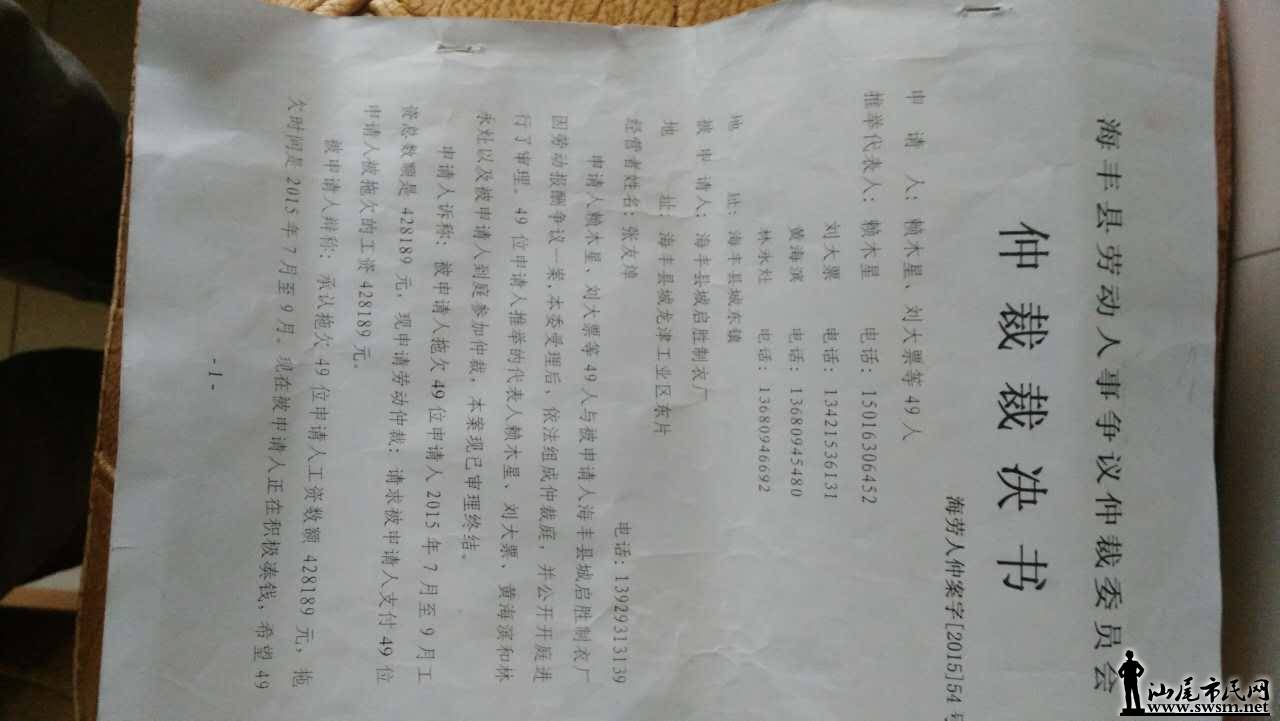 海丰县劳动人事争议仲裁委员会
仲裁裁决书
海劳人仲案字[2015]54号
申请人：赖木星、刘大票等49人
推举代表人：赖木星 电话：15016306452
刘大票 电话：13421536131
黄海滨 电话：13680945480
林永灶 电话：13680946692
地址：海丰县城东镇
被申请人：海丰县城启胜制衣厂
地址：海丰县城龙津工业区东片
经营者姓名：张友 电话：13929313139
申请人赖木星、刘大票等49人与被申请人海丰县城启胜制衣厂
因劳动报酬争议一案，本委受理后，依法组成仲裁庭，并公开开庭进
行了审理。49位申请人推举的代表人赖木星、刘大票、黄海滨和林
永灶以及被申请人到庭参加仲裁，本案现已审理终结。
申请人诉称：被申请人拖欠49位申请人2015年7月至9月工
资总数额是428189元，现申请劳动仲裁：请求被申请人支付49位
申请人被拖欠的工资428189元。
被申请人辩称：承认拖欠49位申请人工资数额428189元，拖
欠时间是2015年7月至9月。现在被申请人正在积极凑钱，希望49
-1-
汕尾市民网
www.swsm.net